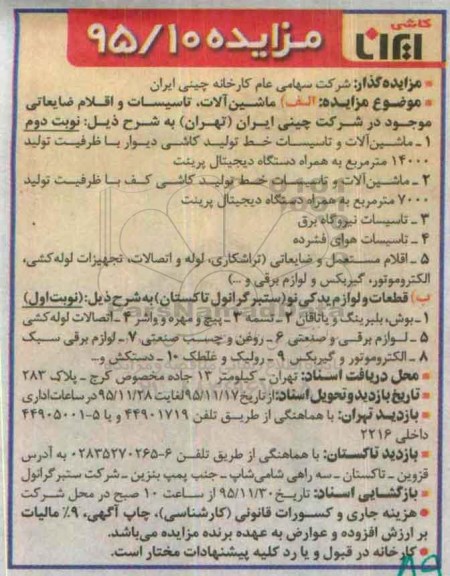 کاشی
ایرانا
مزایده ۹۵/۱۰
مزایده گذار: شرکت سهامی عام کارخانه چینی ایران
موضوع مزایده: الف) ماشین‌آلات، تاسیسات و اقلام ضایعاتی
موجود در شرکت چینی ایران (تهران) به شرح ذیل: نوبت دوم
۱ ـ ماشین‌آلات و تاسیسات خط تولید کاشی دیوار با ظرفیت تولید
۱۴۰۰۰ مترمربع به همراه دستگاه دیجیتال پرینت
۲ ـ ماشین‌آلات و تاسیسات خط تولید کاشی کف با ظرفیت تولید
۷۰۰۰ مترمربع به همراه دستگاه دیجیتال پرینت
۳ ـ تاسیسات نیروگاه برق
۴ ـ تاسیسات هوای فشرده
۵ ـ اقلام مستعمل و ضایعاتی (تراشکاری، لوله و اتصالات، تجهیزات لوله‌کشی،
الکتروموتور، گیربکس و لوازم برقی و ...)
ب) قطعات و لوازم یدکی نو (ستبر گرانول تاکستان) به شرح ذیل: (نوبت اول)
۱ـ بوش، بلبرینگ و یاتاقان ۲ ـ تسمه ۳ ـ پیچ و مهره و واشر ۴ ـ اتصالات لوله کشی
۵ ـ لوازم برقی و صنعتی ۶ ـ روغن و چسب صنعتی ۷ ـ لوازم برقی سبک
۸ ـ الکتروموتور و گیربکس ۹ ـ رولیک و غلطک ۱۰ ـ دستکش و...
محل دریافت اسناد: تهران ـ کیلومتر ۱۳ جاده مخصوص کرج ـ پلاک ۲۸۳
تاریخ بازدید و تحویل اسناد: از تاریخ ۹۵/۱۱/۱۷ لغایت ۹۵/۱۱/۲۸ در ساعات اداری
بازدید تهران: با هماهنگی از طریق تلفن ۴۴۹۰۱۷۱۹ و یا ۵-۴۴۹۰۵۰۰۱
داخلی ۲۲۱۶
بازدید تاکستان: با هماهنگی از طریق تلفن ۶-۰۲۸۳۵۲۷۰۲۶۵ به آدرس
قزوین ـ تاکستان ـ سه راهی شامی‌شاپ ـ جنب پمپ بنزین ـ شرکت ستبر گرانول
بازگشایی اسناد: تاریخ ۹۵/۱۱/۳۰ از ساعت ۱۰ صبح در محل شرکت
هزینه جاری و کسورات قانونی (کارشناسی)، چاپ آگهی، ۹٪ مالیات
بر ارزش افزوده و عوارض به عهده برنده مزایده می‌باشد.
کارخانه در قبول و یا رد کلیه پیشنهادات مختار است.
۸۹